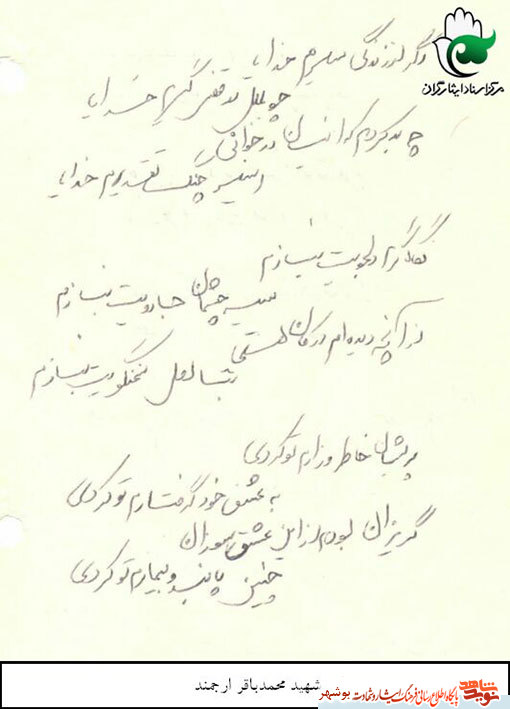 مرکز اسناد ایثارگران
دگر از زندگی سیرم خدایا
چو بلبل در قفس گیرم خدایا
چه بد کردم که اینسان در جوانی
اسیر چنگ تقدیرم خدایا
نگارا دلجویت بنازم
سیه چشمان جادویت بنازم
از آنچه دیده‌ام در کان هستی
لعل سخنگویت بنازم
پریشان خاطر و زارم تو کردی
به عشق خود گرفتارم تو کردی
گریزان بودم از این عشق سوزان
چنین پابند و بیمارم تو کردی
شهید محمدباقر ارجمند
نوید شاهد
پایگاه اطلاع رسانی فرهنگ ایثار و شهادت بوشهر